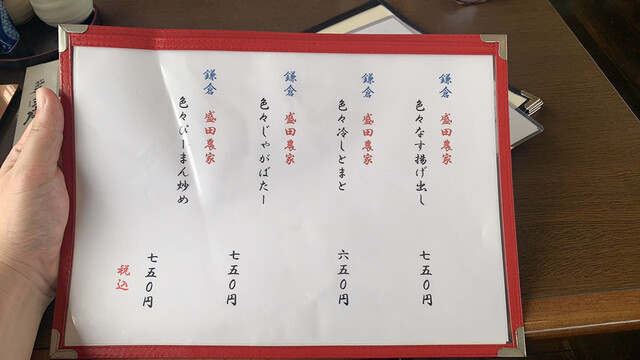 鎌倉 盛田農家
色々なす揚げ出し
七五〇円
鎌倉 盛田農家
色々冷しとまと
六五〇円
鎌倉 盛田農家
色々じゃがばたー
七五〇円
鎌倉 盛田農家
色々ぴーまん炒め
七五〇円
税込